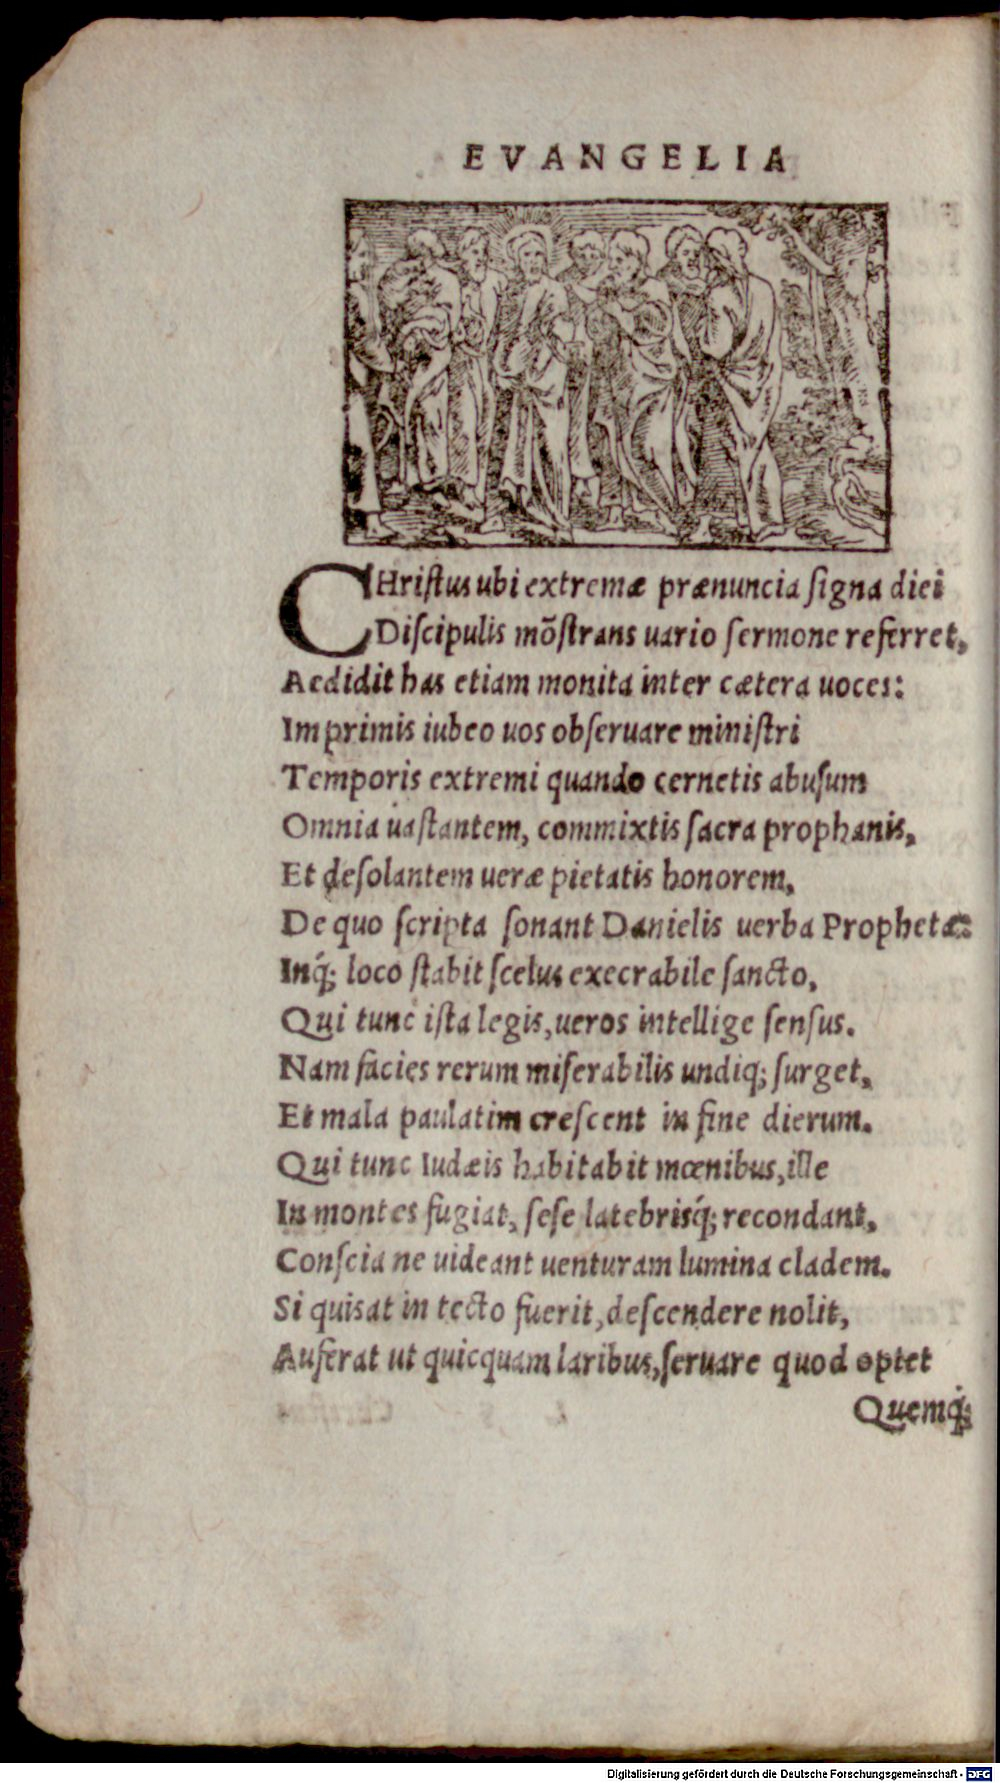 EVANGELIA
CHriſtus ubi extremæ prænuncia ſigna diei
Diſcipulis mõſtrans uario ſermone referret,
Aedidit has etiam monita inter cætera uoces:
Imprimis iubeo uos obſeruare miniſtri
Temporis extremi quando cernetis abuſum
Omnia uaſtantem, commixtis ſacra prophanis,
Et deſolantem ueræ pietatis honorem,
De quo ſcripta ſonant Danielis uerba Prophetæ:
Inq́; loco ſtabit ſcelus execrabile ſancto,
Qui tunc iſta legis, ueros intellige ſenſus.
Nam facies rerum miſerabilis undiq; ſurget,
Et mala paulatim creſcent in fine dierum.
Qui tunc Iudæis habitabit mœnibus, ille
In montes fugiat, ſeſe latebrisq́; recondant,
Conſcia ne uideant uenturam lumina cladem.
Si quis at in tecto fuerit, deſcendere nolit,
Auferat ut quicquam laribus, ſeruare quod optet
Quemq́;
Digitalisierung gefördert durch die Deutsche Forschungsgemeinschaft - DFG